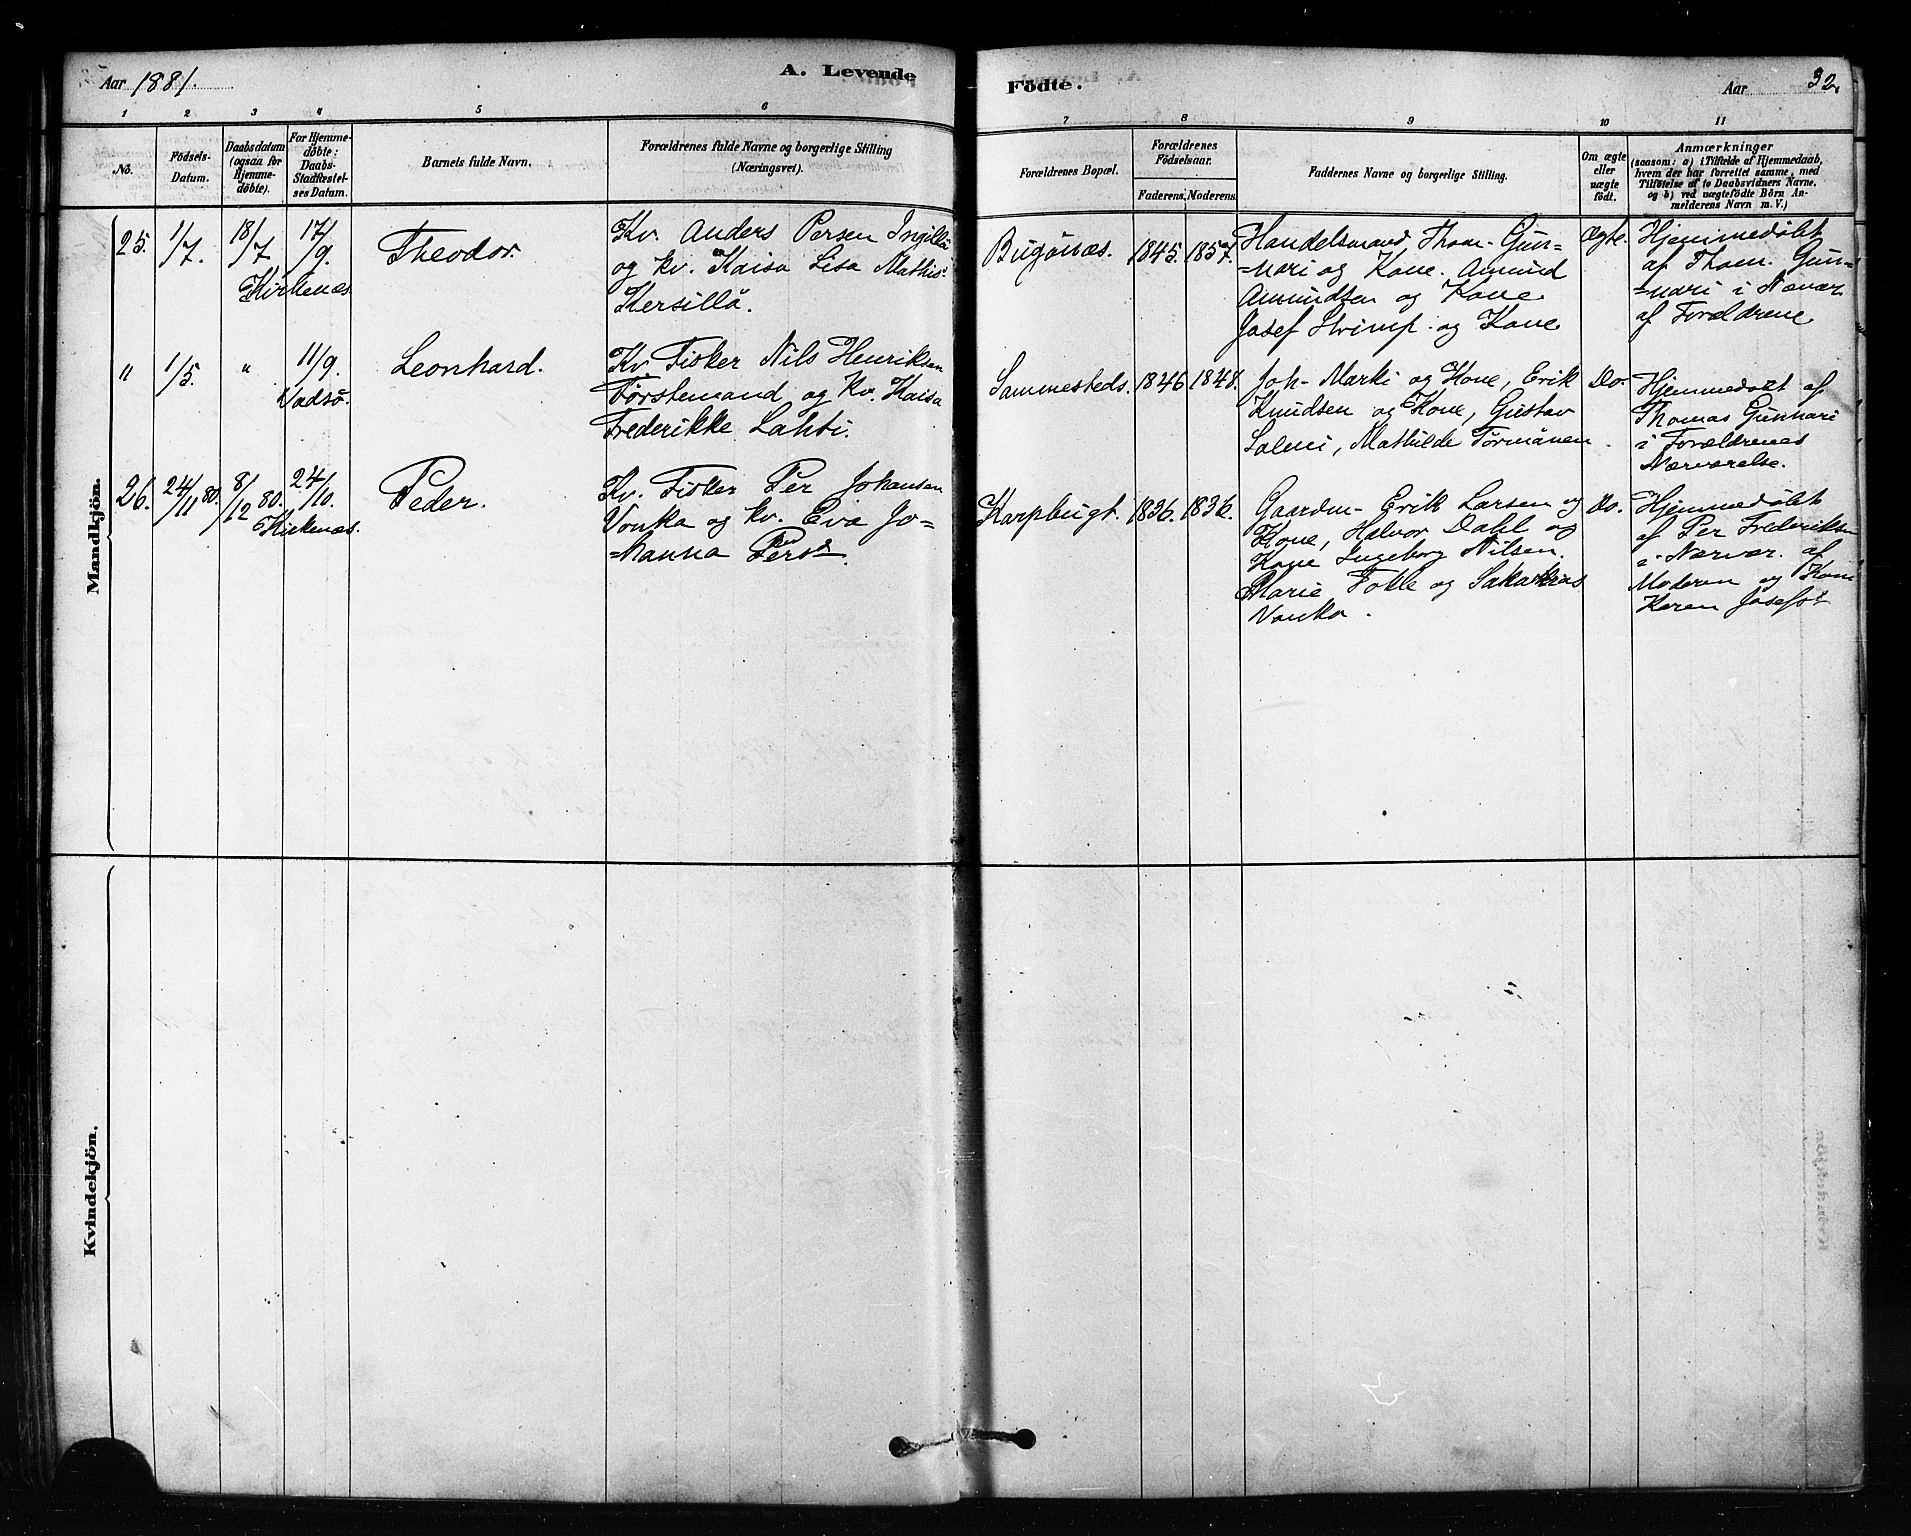 Aar 1881.
A. Levende
Födte.
Aar
32.
1 2 3 4 5 6 7 8 9 10 11
No.
Födsels-
Datum.
Daabsdatum
(ogsaa for
Hjemme-
döbte).
For Hjemme-
döbte:
Daabs-
Stadfæstel-
ses Datum.
Barnets fulde Navn.
Forældrenes fulde Navne og borgerlige Stilling
(Næringsvei).
Forældrenes Bopæl.
Forældrenes
Födselsaar.
Faderens. Moderens.
Faddernes Navne og borgerlige Stilling.
Om ægte
eller
uægte
födt.
Anmærkninger
(saasom: a) i Tilfælde af Hjemmedaab,
hvem der har forrettet samme, med
Tilföielse af to Daabsvidners Navne,
og b) ved uægtefödte Börn An-
melderens Navn m. V.)
Mandkjön.
25. 1/7. 18/7 17/9.
Kirkenæs
Theodor.
Kv. Anders Persen Ingillä
og kv. Kaisa Lisa Mathisd.
Kersillä.
Bugönæs. 1845. 1857.
Handelsmand, Thom. Gun-
=nari og Kone. Amund
Amundsen og Kone
Josef Strimp. og Kone
Ægte.
Hjemmedøbt
af Thom. Gun-
=nari i Nævær
af Forældrene
" 1/5. " 11/9.
Vadsö.
Leonhard.
Kv. Fisker Nils Henriksen
Törstemand og kv. Kaisa
Frederikke Lahti.
Sammesteds. 1846 1848.
Joh. Marki og Kone, Erik
Knudsen og Kone, Gustav
Salmi, Mathilde Törmänen.
Do.
Hjemmedøbt af
Thomas Gunnari
i Forældrenes
Nærværelse.
26. 24/11 80. 8/12 80. 24/10.
Kirkenæs.
Peder.
Kv. Fisker Per Johansen
Vonka og kv. Eva Jo-
=hanna Persd.
Karpbugt. 1836. 1836.
Gaardm. Erik Larsen og
Kone, Halvor Dahl og
Kone Ingeborg Nilsen.
Marie Fokle og Sakarias
Vonka.
Do.
Hjemmedøbt
af Per Frederiksen
i Nærvær. af
Moderen og
Karen Josefsd.
Kvindekjön.